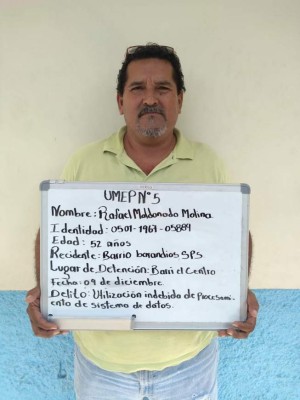 UMEP N°5
Nombre: Rafael Maldonado Molina.
Identidad: 0501-1967-05889
Edad: 52 años
Recidente: Barrio barandios SPS
Lugar de Detención: Barri el Centro
Fecha: 09 de diciembre.
Delito: Utilización indebida de Procesami-
ento de sistema de datos.